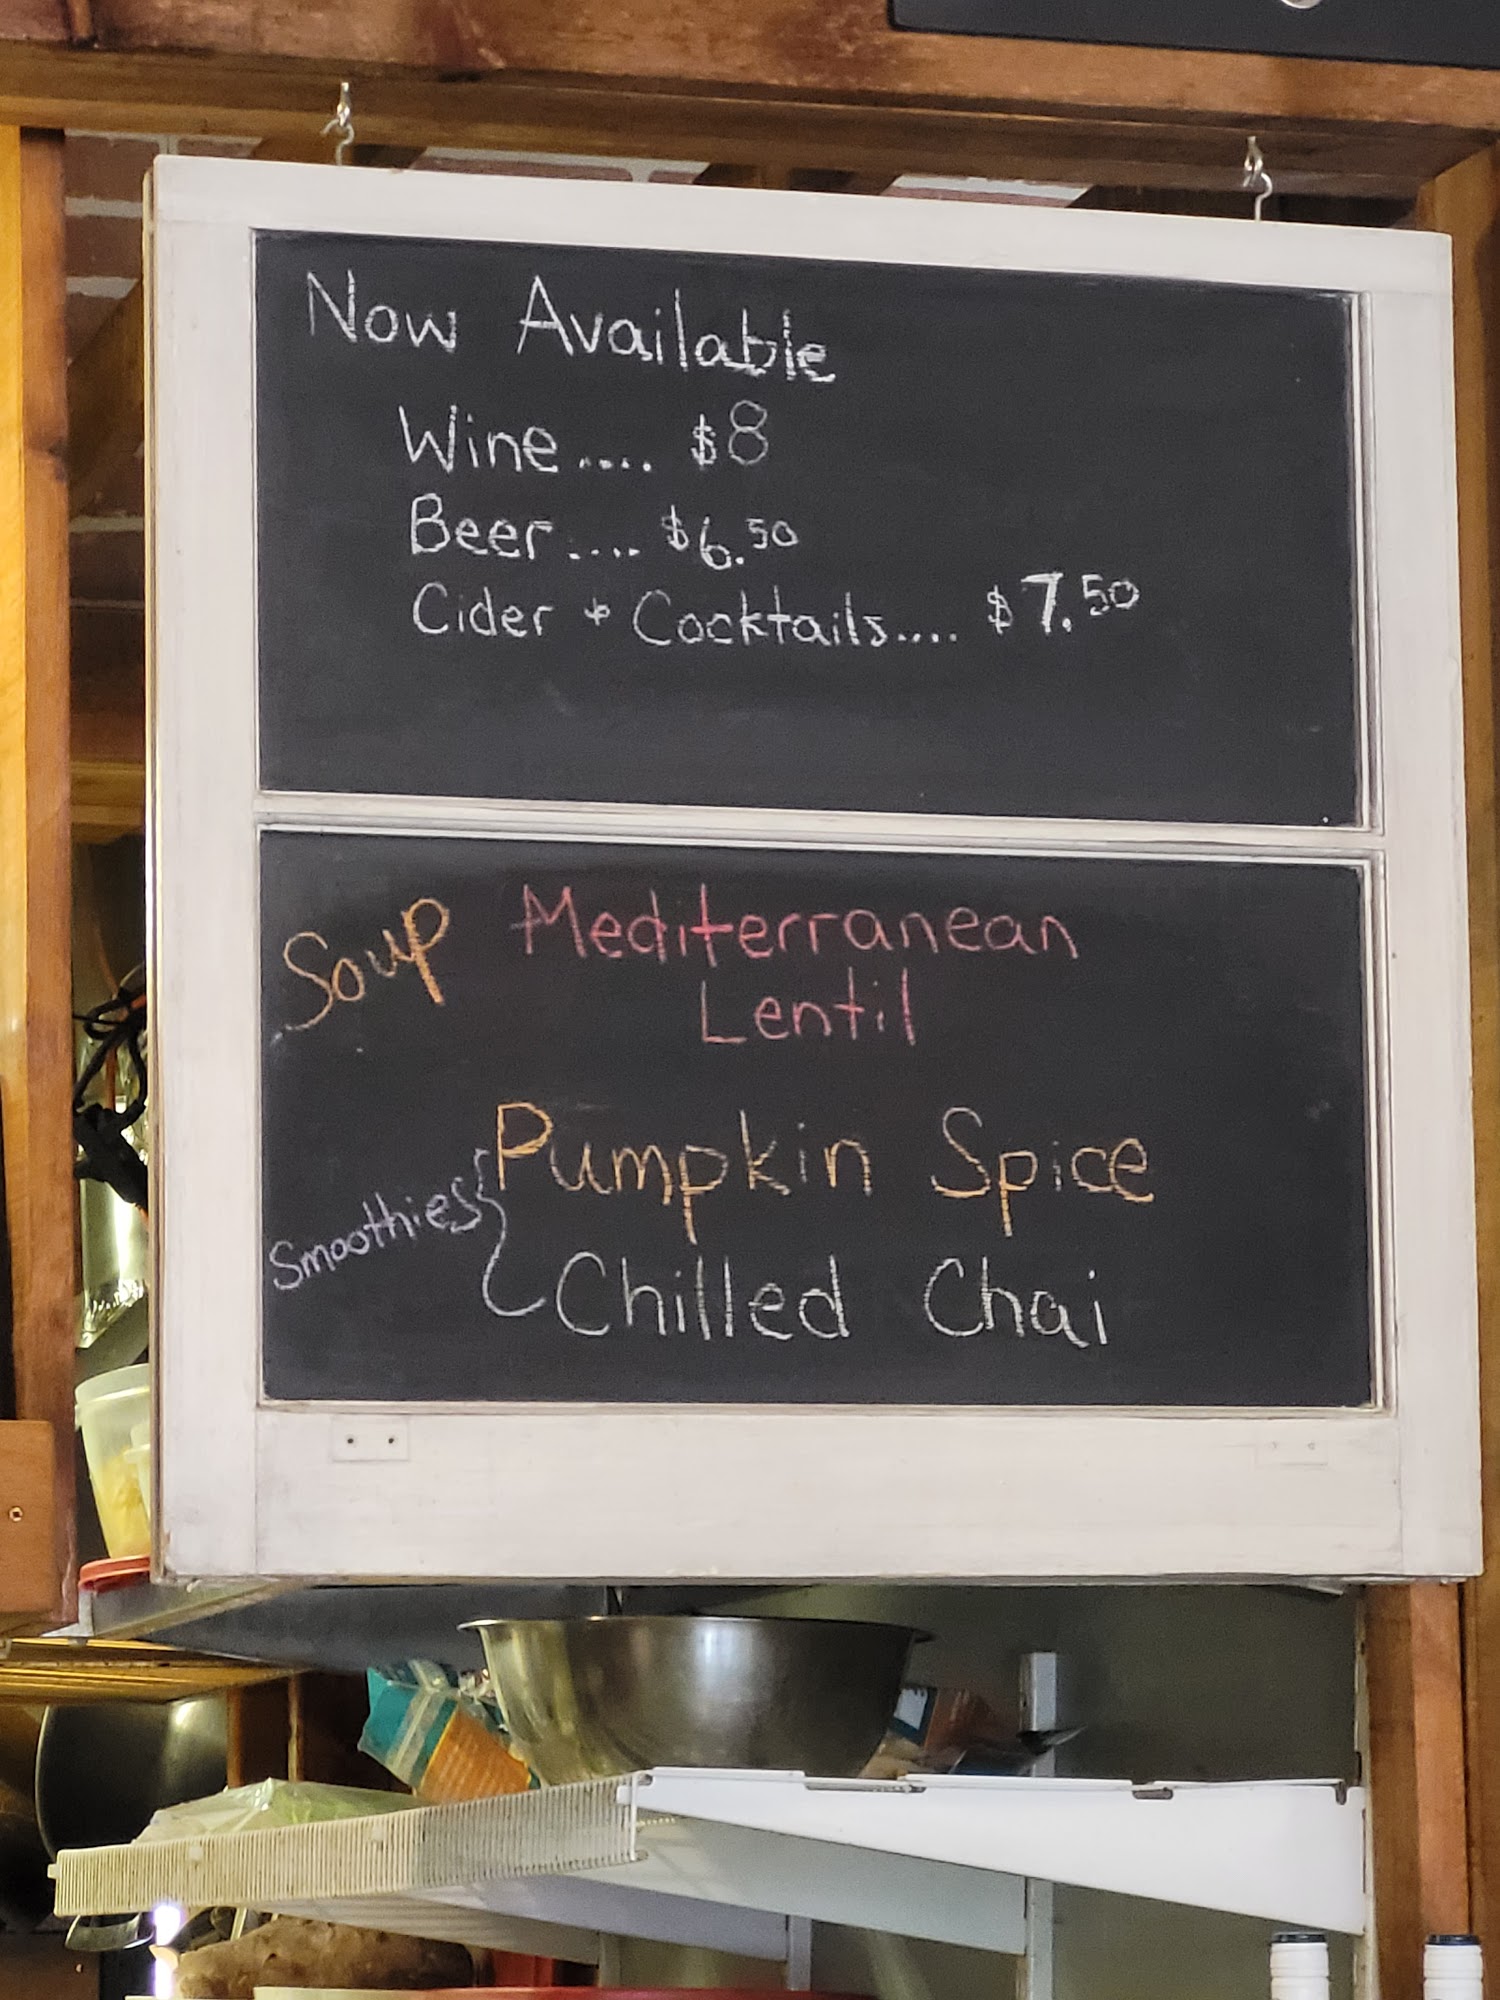 Now Available
Wine.... $8
Beer.... $6.50
Cider & Cocktails.... $7.50
Soup Mediterranean
Lentil
Smoothies { Pumpkin Spice
Chilled Chai